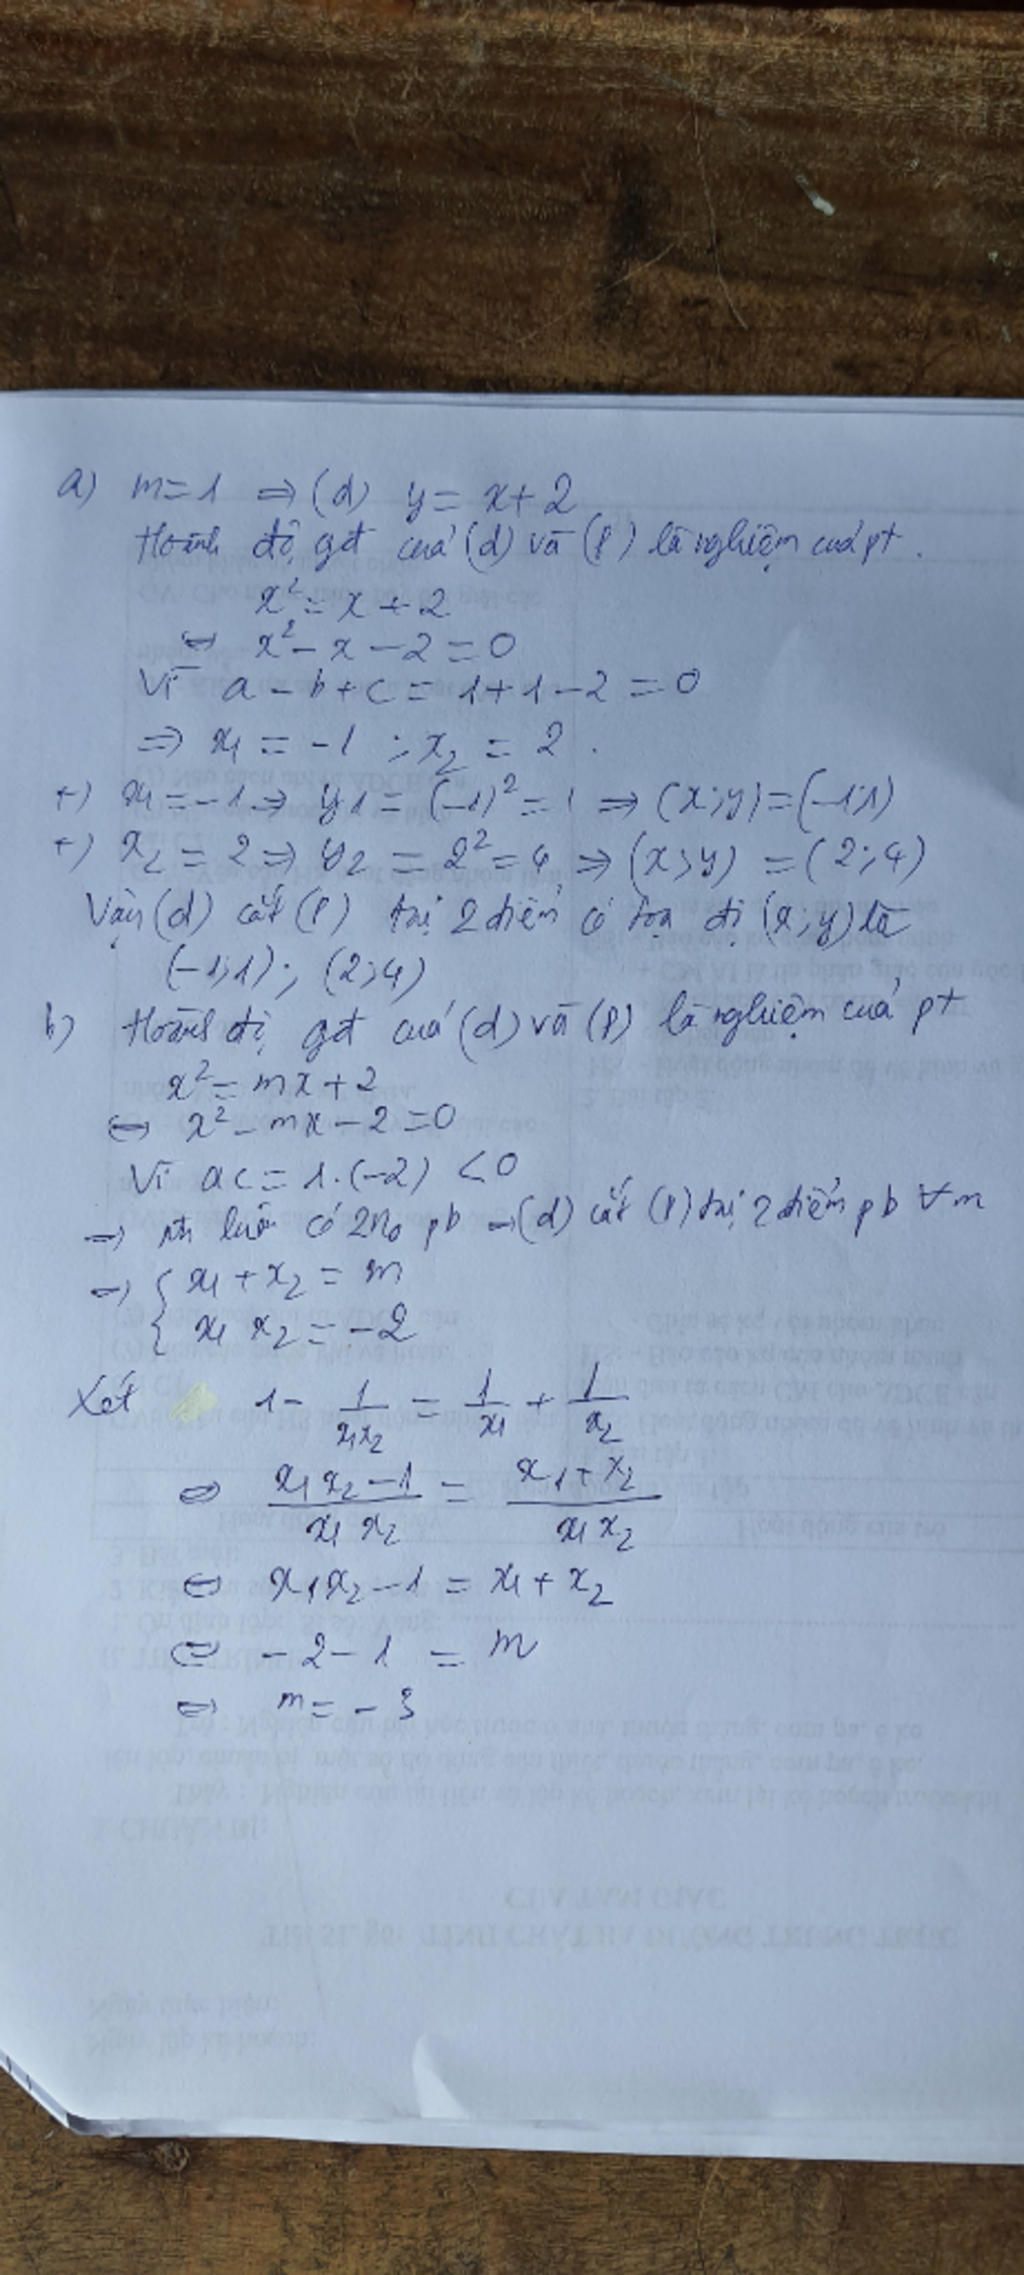 a) m=1 ⇒ (d) y = x+2
Hoành độ gđ của (d) và (P) là nghiệm của pt.
x² = x + 2
⇔ x² - x - 2 = 0
Vì a - b + c = 1+1-2 = 0
⇒ x₁ = -1 ; x₂ = 2.
+) x₁ = -1 ⇒ y1 = (-1)² = 1 ⇒ (x;y) = (-1;1)
+) x₂ = 2 ⇒ y₂ = 2² = 4 ⇒ (x;y) = (2;4)
Vậy (d) cắt (P) tại 2 điểm có tọa độ (x;y) là
(-1;1); (2;4)
b) Hoành độ gđ của (d) và (P) là nghiệm của pt
x² = mx + 2
⇔ x² - mx - 2 = 0
Vì ac = 1.(-2) < 0
⇒ pt luôn có 2 n₀ pb ⇒ (d) cắt (P) tại 2 điểm pb ∀m
⇒ { x₁ + x₂ = m
{ x₁ x₂ = -2
Xét 1 - 1/(x₁x₂) = 1/x₁ + 1/x₂
⇔ (x₁x₂ - 1)/(x₁x₂) = (x₁ + x₂)/(x₁x₂)
⇔ x₁x₂ - 1 = x₁ + x₂
⇔ -2 - 1 = m
⇔ m = -3